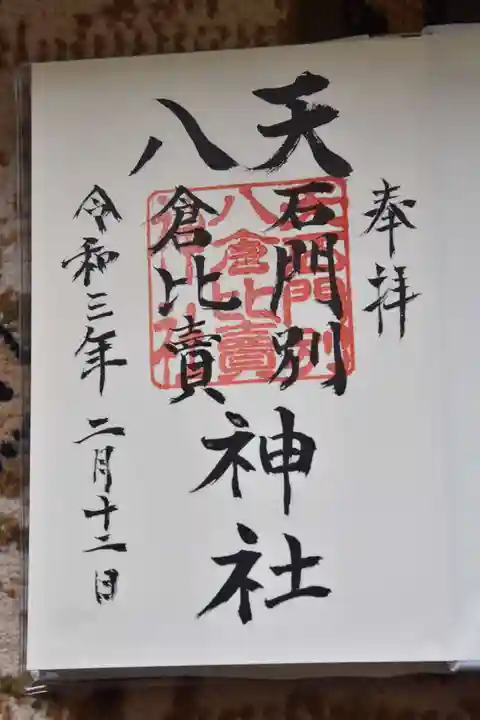 奉拝
天石門別
八倉比賣
神社
令和三年 二月十二日